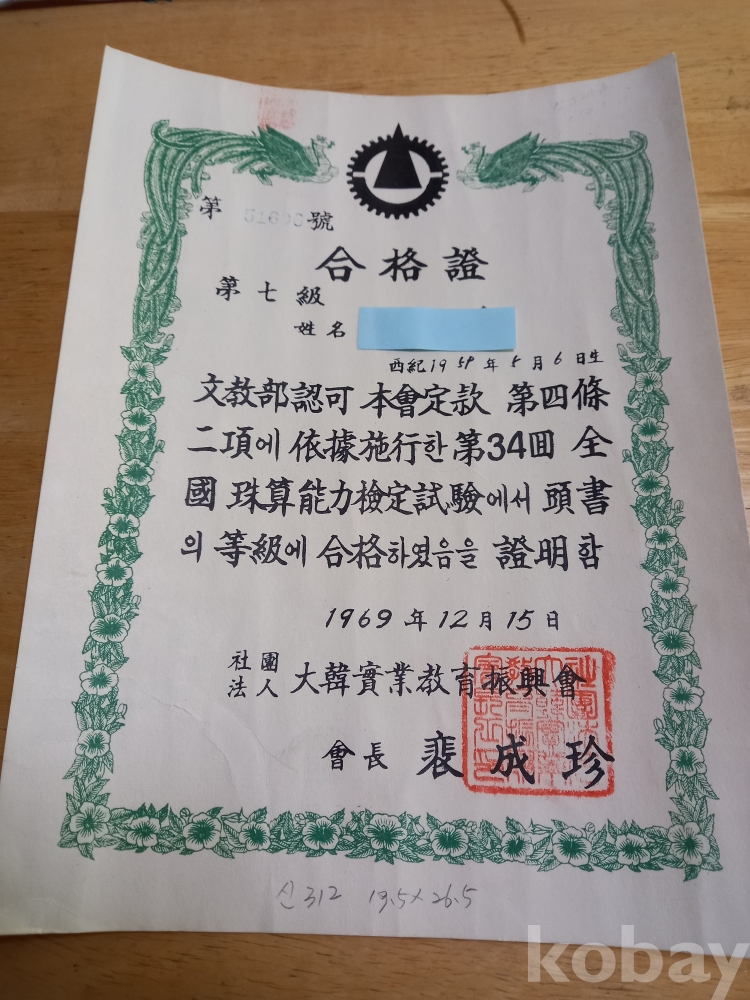 第 號
合格證
第七級
姓名
西紀19 年 5月6日生
文敎部認可 本會定款 第四條
二項에 依據施行한 第34回 全
國 珠算能力檢定試驗에서 頭書
의 等級에 合格하였음을 證明함
1969年12月15日
社團法人 大韓實業敎育振興會
會長 裵成珍
신312 19.5×26.5
kobay